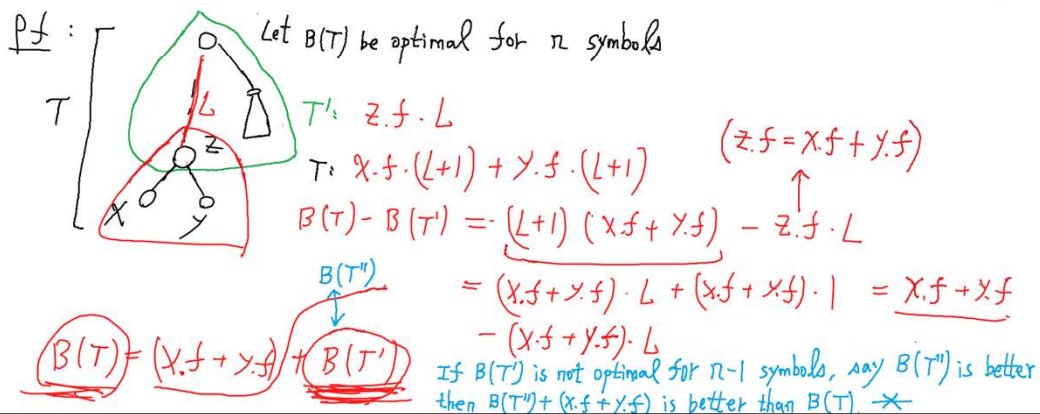 Pf : Let B(T) be optimal for n symbols
T
L
T': Z.f · L
Z
(Z.f = X.f + Y.f)
T: X.f · (L+1) + Y.f · (L+1)
X Y
B(T) - B(T') = (L+1) (X.f + Y.f) - Z.f · L
B(T'')
= (X.f + Y.f) · L + (X.f + X.f) · 1 = X.f + X.f
- (X.f + Y.f) · L
B(T) = (X.f + Y.f) + B(T')
If B(T') is not optimal for n-1 symbols, say B(T'') is better
then B(T'') + (X.f + Y.f) is better than B(T)